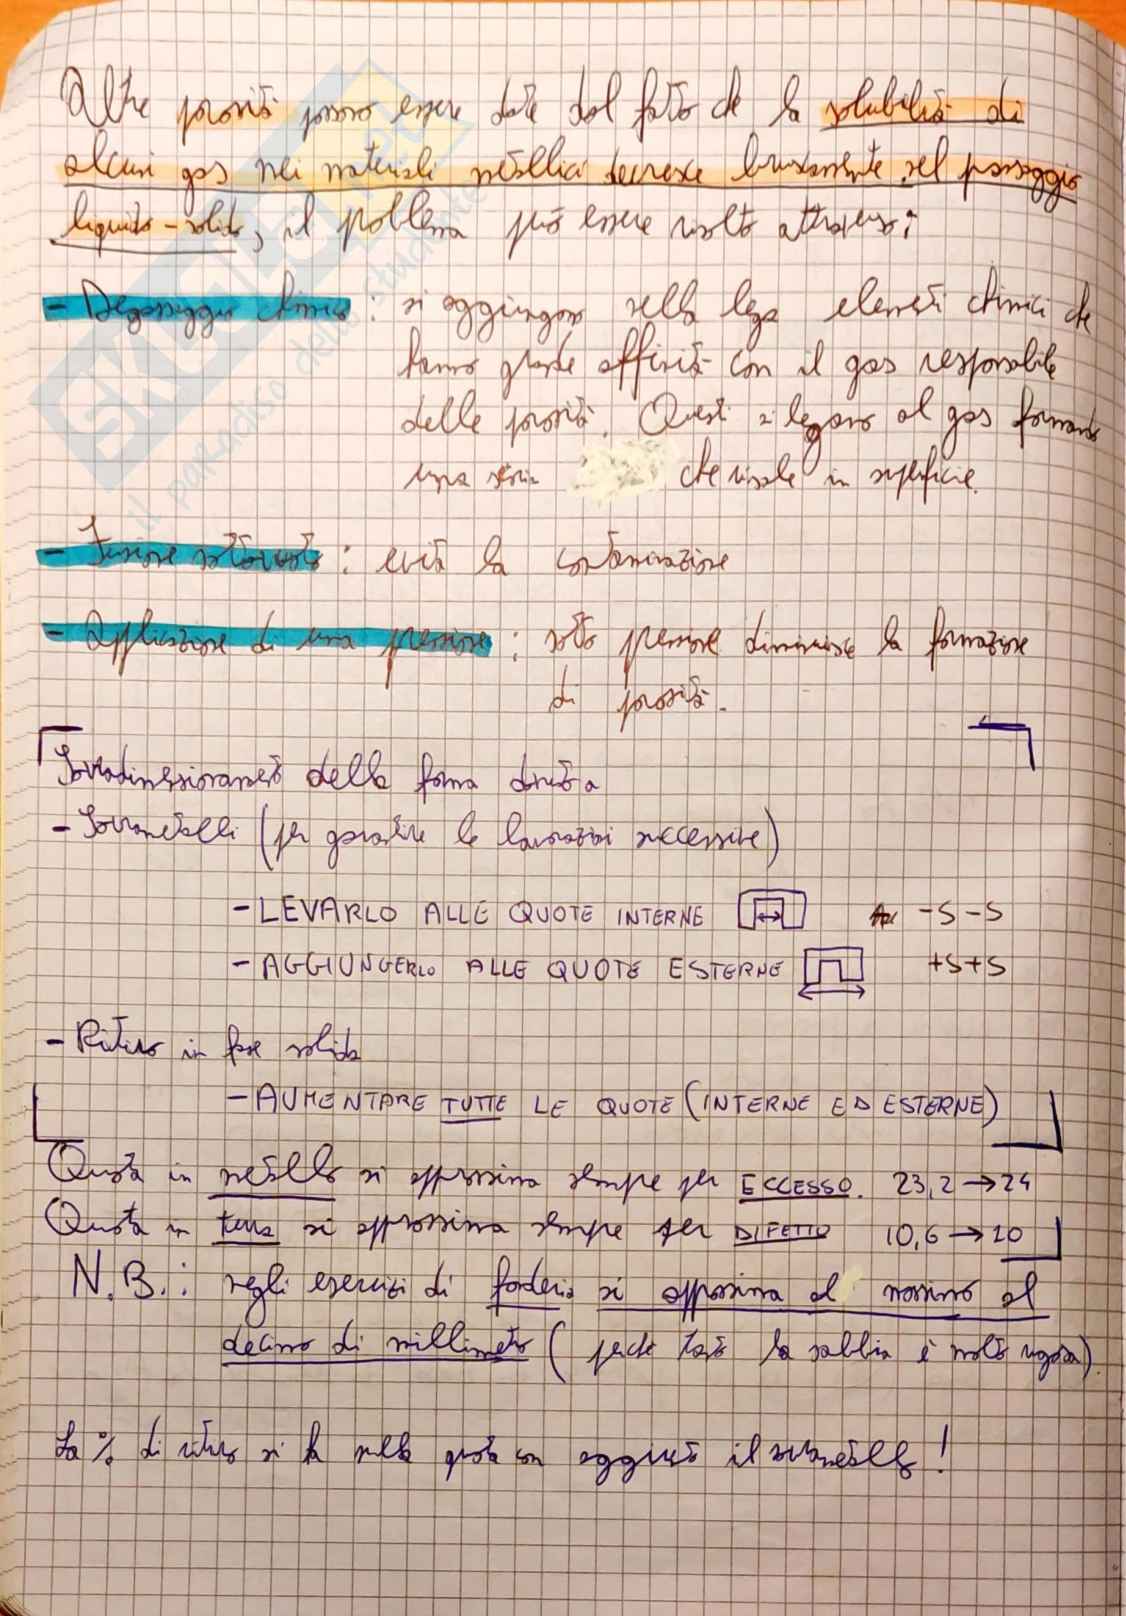 Altre porosità possono essere date dal fatto che la solubilità di
alcuni gas nei materiali metallici decresce bruscamente nel passaggio
liquido-solido, il problema può essere risolto attraverso:
- Degassaggio chimico: si aggiungono nella lega elementi chimici che
hanno grande affinità con il gas responsabile
delle porosità. Questi si legano al gas formando
una che risale in superficie.
- Fusione sottovuoto: evita la contaminazione
- Applicazione di una pressione: sotto pressione diminuisce la formazione
di porosità.
Sovradimensionamento della forma dovuto a
- Sovrametalli (per garantire le lavorazioni successive)
- LEVARLO ALLE QUOTE INTERNE -S -S
- AGGIUNGERLO ALLE QUOTE ESTERNE +S+S
- Ritiro in fase solida
- AUMENTARE TUTTE LE QUOTE (INTERNE ED ESTERNE)
Quota in metallo si approssima sempre per ECCESSO. 23,2 → 24
Quota in terra si approssima sempre per DIFETTO 10,6 → 10
N.B.: negli esercizi di fonderia si approssima al massimo al
decimo di millimetro (perché tanto la sabbia è molto rugosa).
La % di ritiro si fa sulla quota con aggiunto il sovrametallo!
SKUOLA.net
il paradiso dello studente